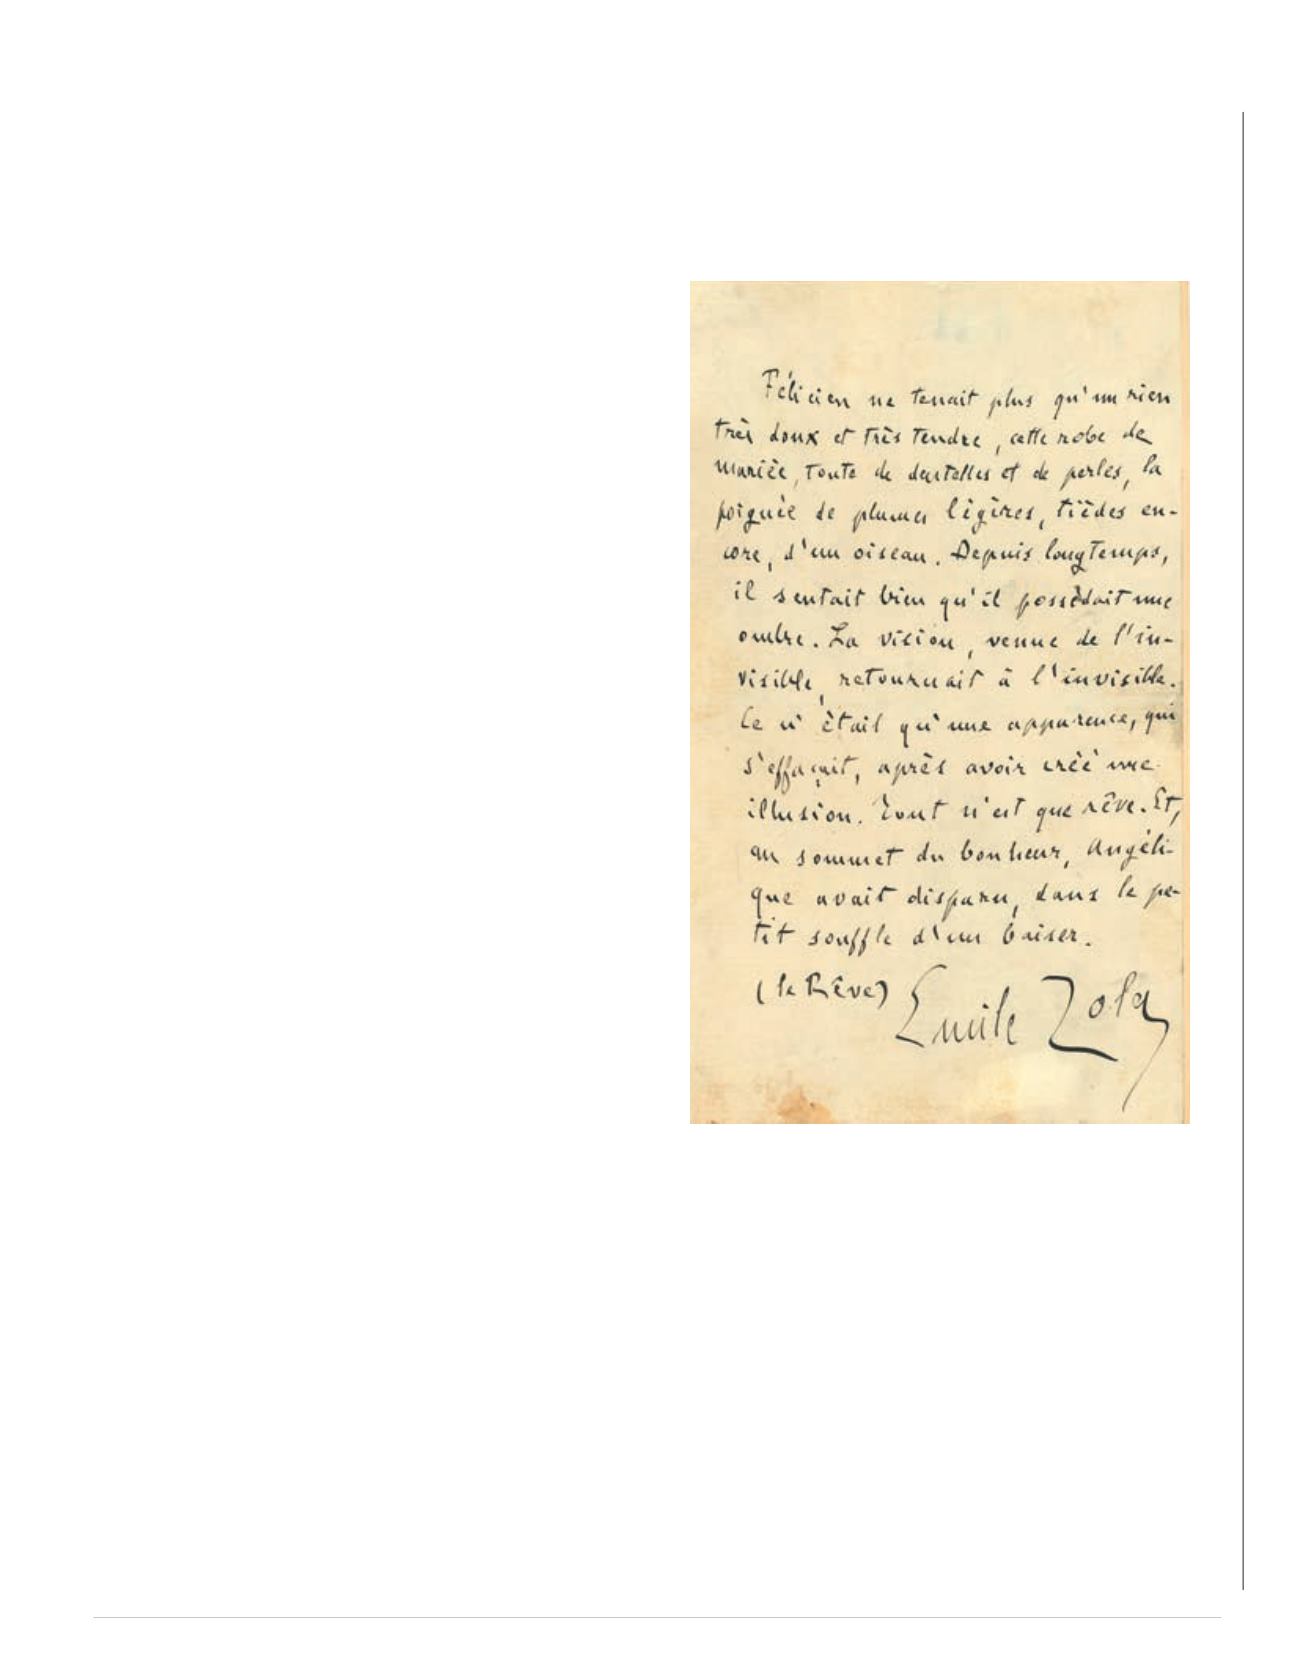 Félicien ne tenait plus qu'un rien
très doux et très tendre, cette robe de
mariée, toute de dentelles et de perles, la
poignée de plumes légères, tièdes en-
core, d'un oiseau. Depuis longtemps,
il sentait bien qu'il possédait une
ombre. La vision, venue de l'in-
visible, retournait à l'invisible.
Ce n'était qu'une apparence, qui
s'effaçait, après avoir créé une
illusion. Tout n'est que rêve. Et,
au sommet du bonheur, Angéli-
que avait disparu, dans le pe-
tit souffle d'un baiser.
(le Rêve) Emile Zola